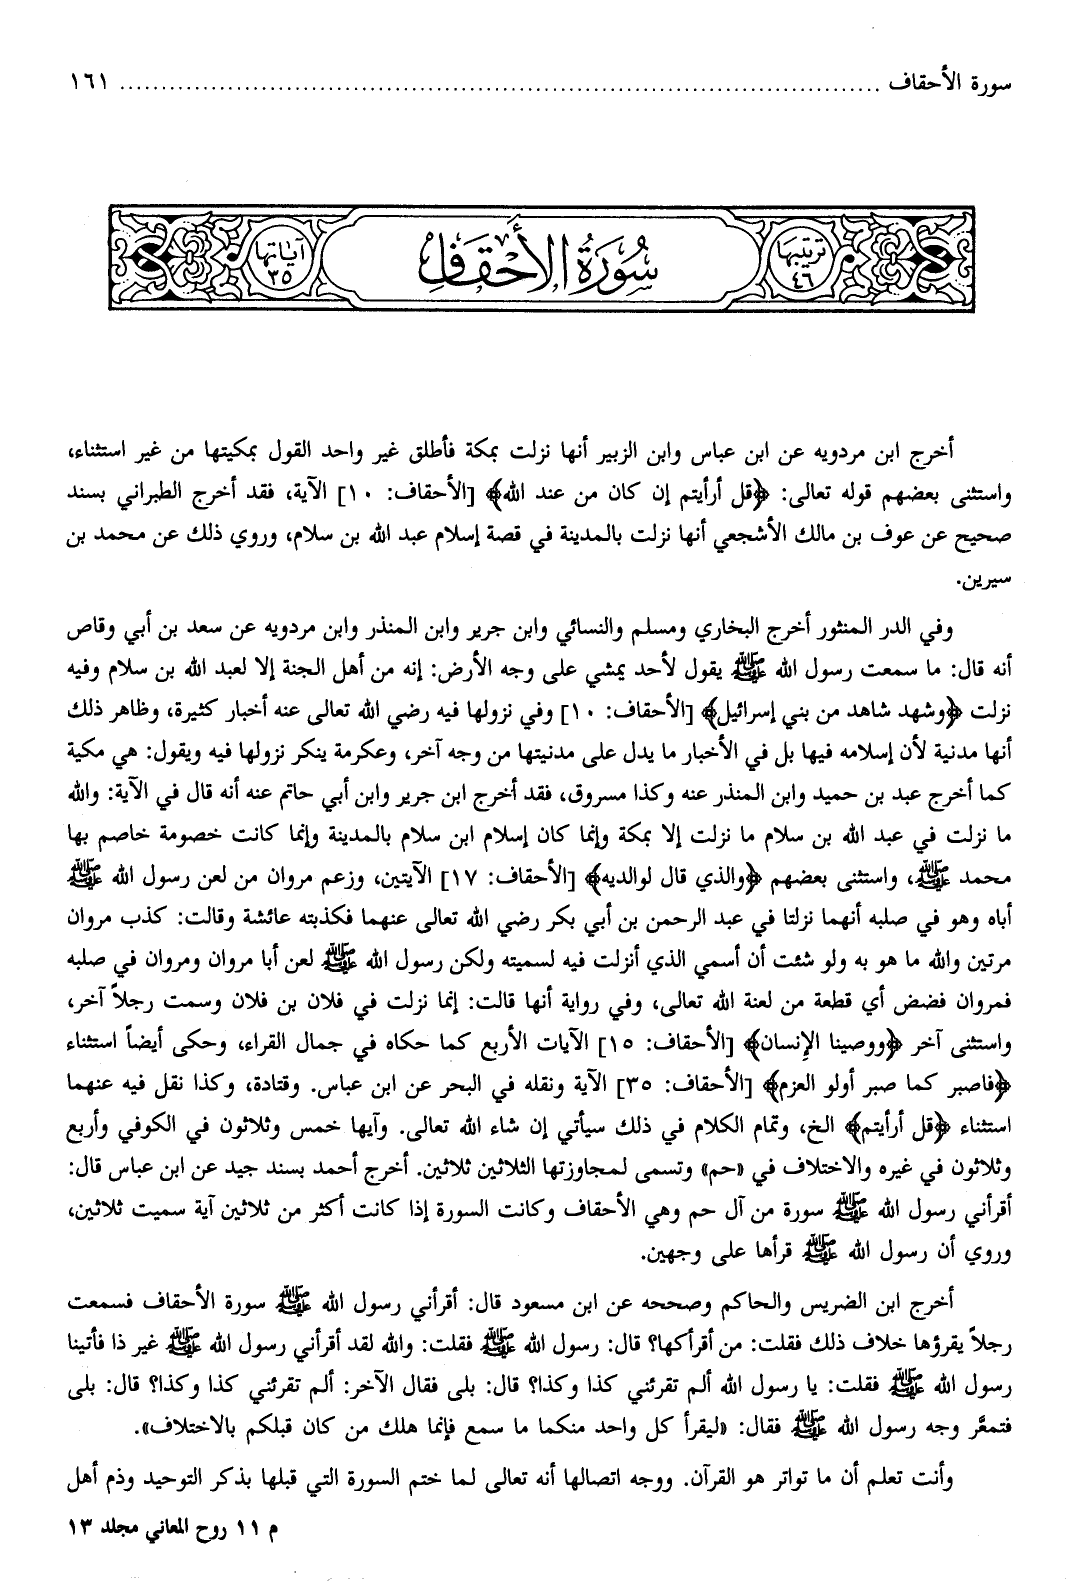 سورة الأحقاف ........................................................................................ ١٦١
ترتيبها ٤٦
سُورَةُ الأَحْقَافِ
آياتها ٣٥
أخرج ابن مردويه عن ابن عباس وابن الزبير أنها نزلت بمكة فأطلق غير واحد القول بمكيتها من غير استثناء،
واستثنى بعضهم قوله تعالى: ﴿قل أرأيتم إن كان من عند الله﴾ [الأحقاف: ١٠] الآية، فقد أخرج الطبراني بسند
صحيح عن عوف بن مالك الأشجعي أنها نزلت بالمدينة في قصة إسلام عبد الله بن سلام، وروي ذلك عن محمد بن
سيرين.
وفي الدر المنثور أخرج البخاري ومسلم والنسائي وابن جرير وابن المنذر وابن مردويه عن سعد بن أبي وقاص
أنه قال: ما سمعت رسول الله ﷺ يقول لأحد يمشي على وجه الأرض: إنه من أهل الجنة إلا لعبد الله بن سلام وفيه
نزلت ﴿وشهد شاهد من بني إسرائيل﴾ [الأحقاف: ١٠] وفي نزولها فيه رضي الله تعالى عنه أخبار كثيرة، وظاهر ذلك
أنها مدنية لأن إسلامه فيها بل في الأخبار ما يدل على مدنيتها من وجه آخر، وعكرمة ينكر نزولها فيه ويقول: هي مكية
كما أخرج عبد بن حميد وابن المنذر عنه وكذا مسروق، فقد أخرج ابن جرير وابن أبي حاتم عنه أنه قال في الآية: والله
ما نزلت في عبد الله بن سلام ما نزلت إلا بمكة وإنما كان إسلام ابن سلام بالمدينة وإنما كانت خصومة خاصم بها
محمد ﷺ، واستثنى بعضهم ﴿والذي قال لوالديه﴾ [الأحقاف: ١٧] الآيتين، وزعم مروان من لعن رسول الله ﷺ
أباه وهو في صلبه أنهما نزلتا في عبد الرحمن بن أبي بكر رضي الله تعالى عنهما فكذبته عائشة وقالت: كذب مروان
مرتين والله ما هو به ولو شئت أن أسمي الذي أنزلت فيه لسميته ولكن رسول الله ﷺ لعن أبا مروان ومروان في صلبه
فمروان فضض أي قطعة من لعنة الله تعالى، وفي رواية أنها قالت: إنما نزلت في فلان بن فلان وسمت رجلاً آخر،
واستثنى آخر ﴿ووصينا الإنسان﴾ [الأحقاف: ١٥] الآيات الأربع كما حكاه في جمال القراء، وحكى أيضاً استثناء
﴿فاصبر كما صبر أولو العزم﴾ [الأحقاف: ٣٥] الآية ونقله في البحر عن ابن عباس. وقتادة، وكذا نقل فيه عنهما
استثناء ﴿قل أرأيتم﴾ الخ، وتمام الكلام في ذلك سيأتي إن شاء الله تعالى. وآيها خمس وثلاثون في الكوفي وأربع
وثلاثون في غيره والاختلاف في «حم» وتسمى لمجاوزتها الثلاثين ثلاثين. أخرج أحمد بسند جيد عن ابن عباس قال:
أقرأني رسول الله ﷺ سورة من آل حم وهي الأحقاف وكانت السورة إذا كانت أكثر من ثلاثين آية سميت ثلاثين،
وروي أن رسول الله ﷺ قرأها على وجهين.
أخرج ابن الضريس والحاكم وصححه عن ابن مسعود قال: أقرأني رسول الله ﷺ سورة الأحقاف فسمعت
رجلاً يقرؤها خلاف ذلك فقلت: من أقرأكها؟ قال: رسول الله ﷺ فقلت: والله لقد أقرأني رسول الله ﷺ غير ذا فأتينا
رسول الله ﷺ فقلت: يا رسول الله ألم تقرئني كذا وكذا؟ قال: بلى فقال الآخر: ألم تقرئني كذا وكذا؟ قال: بلى
فتمعَّر وجه رسول الله ﷺ فقال: «ليقرأ كل واحد منكما ما سمع فإنما هلك من كان قبلكم بالاختلاف».
وأنت تعلم أن ما تواتر هو القرآن. ووجه اتصالها أنه تعالى لما ختم السورة التي قبلها بذكر التوحيد وذم أهل
م ١١ روح المعاني مجلد ١٣